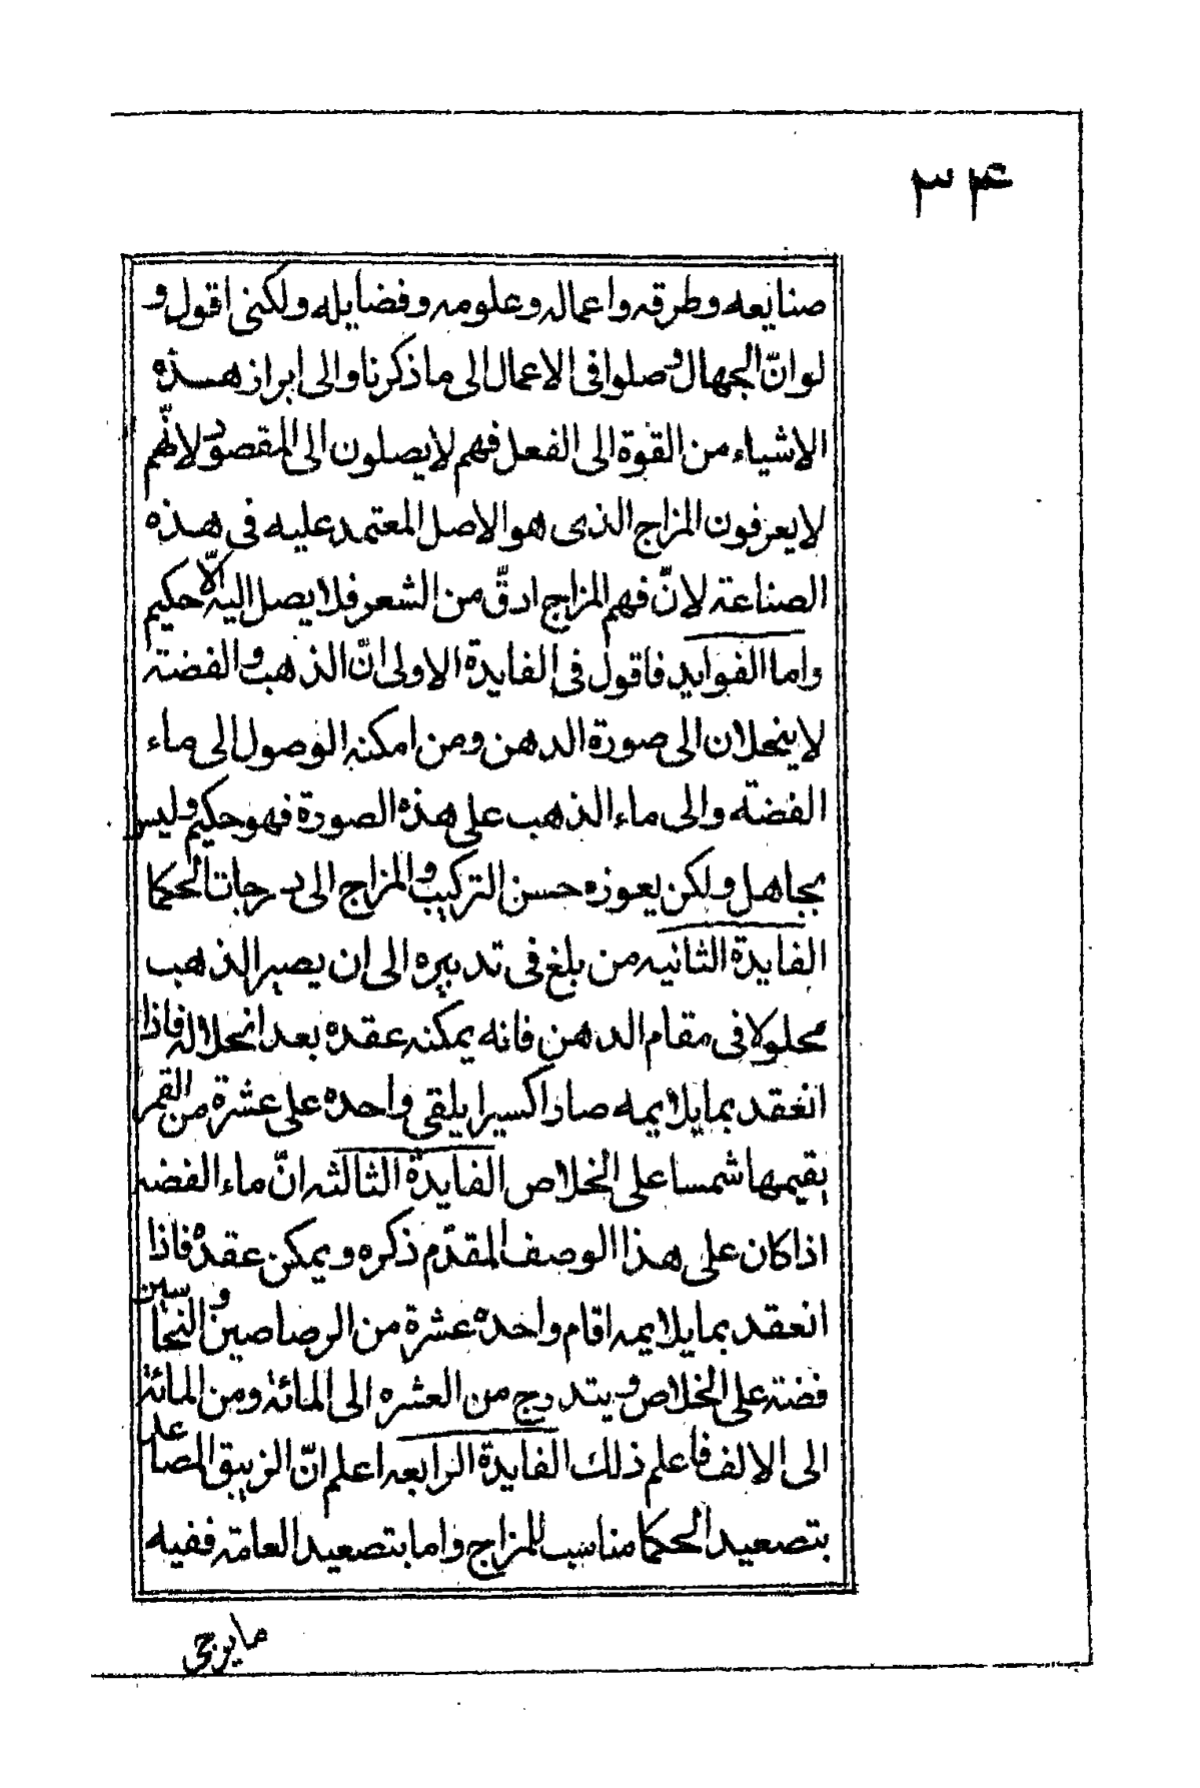 ۳۴
صنايعه وطرقه واعماله وعلومه وفضايله ولكنى اقول و
لو انّ الجهال وصلوا فى الاعمال الى ما ذكرنا والى ابراز هذه
الاشياء من القوة الى الفعل فهم لا يصلون الى المقصود لانّهم
لا يعرفون المزاج الذى هو الاصل المعتمد عليه فى هذه
الصناعة لانّ فهم المزاج ادقّ من الشعر فلا يصل اليه الّا حكيم
واما الفوايد فاقول فى الفايدة الاولى انّ الذهب والفضة
لا ينحلان الى صورة الدهن ومن امكنه الوصول الى ماء
الفضة والى ماء الذهب على هذه الصورة فهو حكيم وليس
بجاهل ولكن يعوزه حسن التركيب والمزاج الى درجات الحكما
الفايدة الثانيه من بلغ فى تدبيره الى ان يصير الذهب
محلولا فى مقام الدهن فانه يمكنه عقده بعد انحلاله فاذا
انعقد بما يلايمه صار اكسيرا يلقى واحده على عشرة من القمر
يقيمها شمسا على الخلاص الفايدة الثالثه انّ ماء الفضه
اذا كان على هذا الوصف المقدّم ذكره ويمكن عقده فاذا
انعقد بما يلايمه اقام واحده عشرة من الرصاصين والنحاسين
فضة على الخلاص ويتدرج من العشره الى المائة ومن المائة
الى الالف فاعلم ذلك الفايدة الرابعه اعلم انّ الزيبق المصاعد
بتصعيد الحكما مناسب للمزاج واما بتصعيد العامة ففيه
ما يرجى